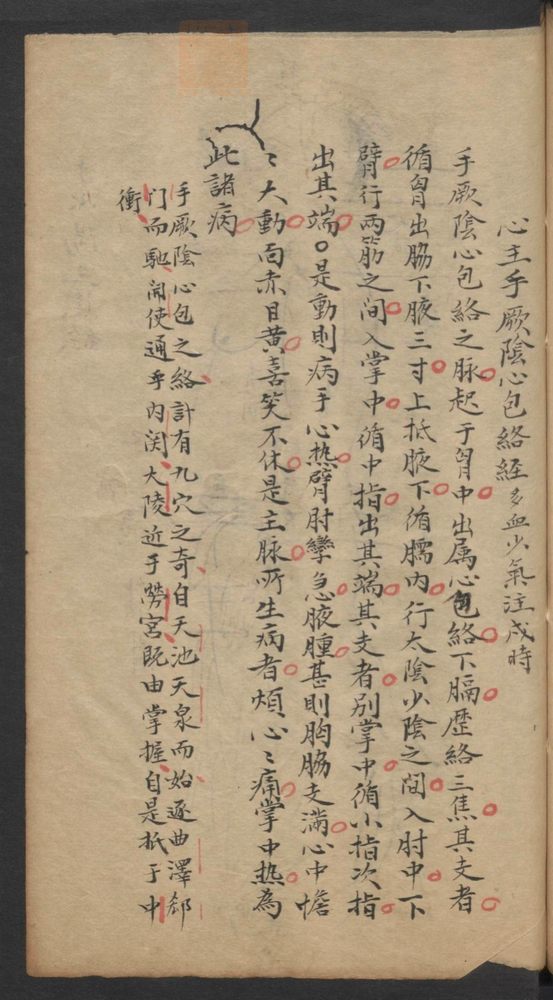 心主手厥陰心包絡經多血少氣注戌時
手厥陰心包絡之脉起于胷中出属心包絡下膈歷絡三焦其支者
循胷出脇下腋三寸上抵腋下循臑内行太陰少陰之间入肘中下
臂行兩筋之间入掌中循中指出其端其支者别掌中循小指次指
出其端○是動則病手心热臂肘攣急腋腫甚則胸脇支滿心中憺
〻大動面赤目黄喜笑不休是主脉所生病者煩心〻痛掌中热為
此諸病
手厥陰心包之絡計有九穴之奇自天池天泉而始逐曲澤郄
门而馳间使通乎内関大陵近于勞宮既由掌握自是抵于中
衝